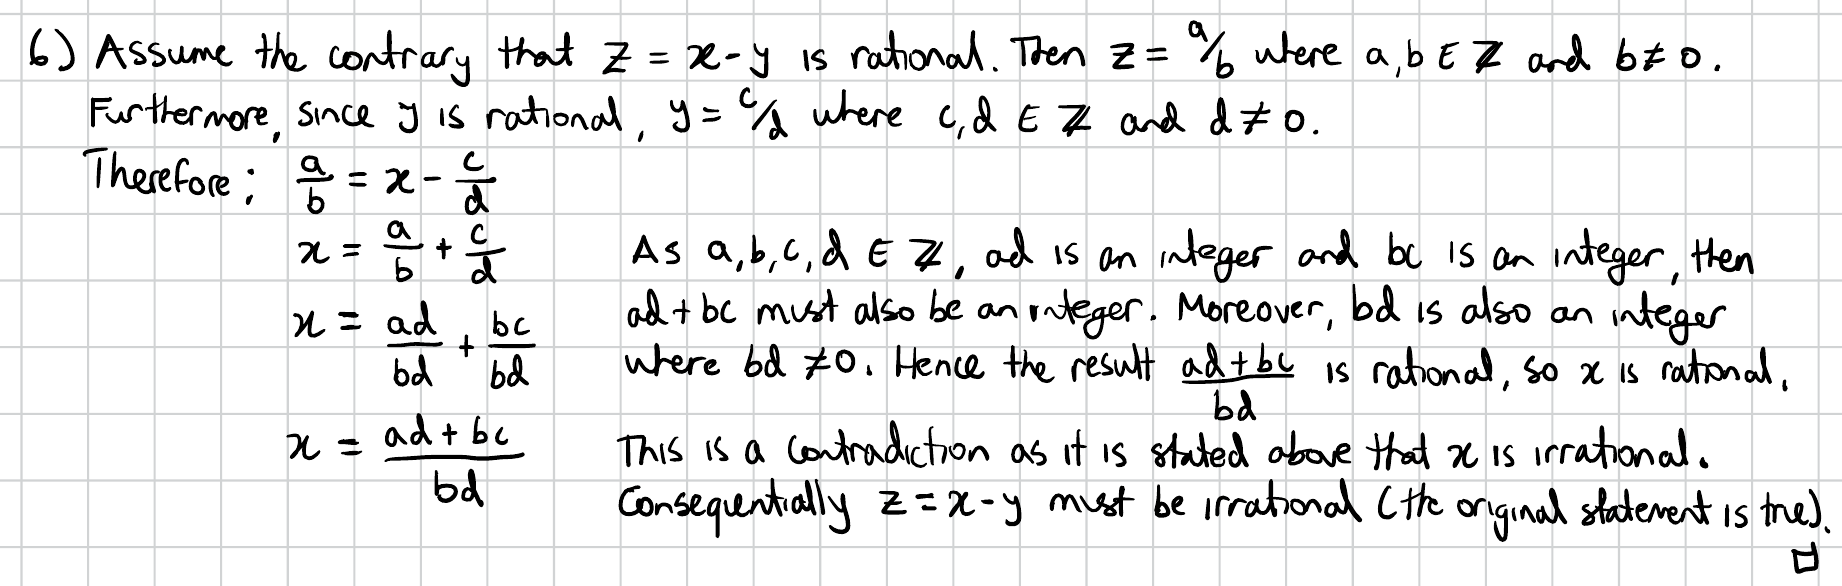 6) Assume the contrary that z = x - y is rational. Then z = a/b where a,b ∈ ℤ and b ≠ 0.
Furthermore, since y is rational, y = c/d where c,d ∈ ℤ and d ≠ 0.
Therefore; a/b = x - c/d
x = a/b + c/d
x = ad/bd + bc/bd
x = (ad + bc)/bd
As a,b,c,d ∈ ℤ, ad is an integer and bc is an integer, then
ad + bc must also be an integer. Moreover, bd is also an integer
where bd ≠ 0. Hence the result (ad + bc)/bd is rational, so x is rational.
This is a contradiction as it is stated above that x is irrational.
Consequentially z = x - y must be irrational (the original statement is true).
□